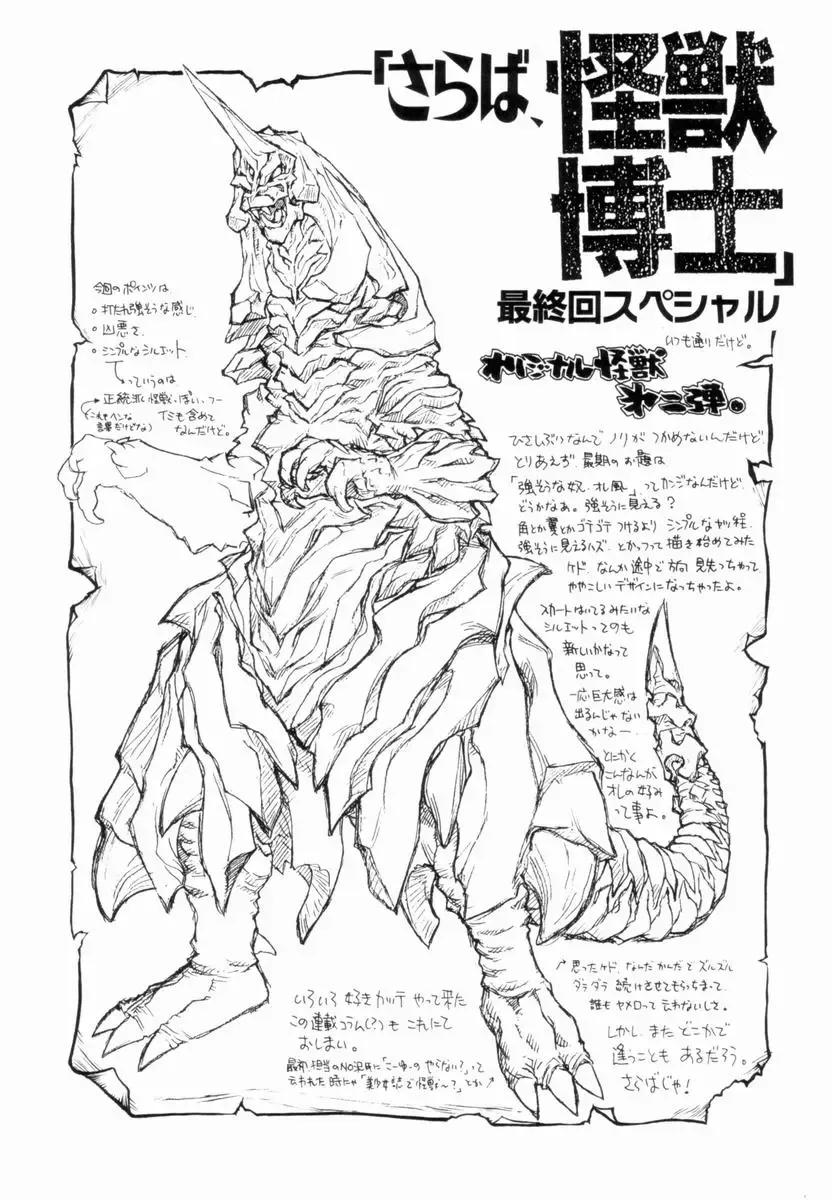 「さらば、怪獣
博士」
最終回スペシャル
いつも通りだけど。
オリジナル怪獣
第二弾。
今回のポインツは
。打たれ強そうな感じ
。凶悪さ
。シンプルなシルエット
っていうのは
正統派怪獣っぽい、つー
イミも含めて
なんだけど。
(これもヘンな
言葉だけどな)
ひさしぶりなんで ノリが つかめないんだけど
とりあえず 最期のお題は
「強そうな奴、オレ風」ってカンジなんだけど
どうかなあ。強そうに見える?
角とか翼とかゴテゴテつけるより シンプルなヤツ程
強そうに見えるハズ、とかっつって描き始めてみた
ケド、なんか途中で方向見失っちゃって
ややこしいデザインになっちゃったよ。
スカートはいてるみたいな
シルエットってのも
新しいかなって
思って。
一応巨大感は
出るんじゃない
かなー
とにかく
こんなんが
オレの好み
って事よ。
いろいろ 好きカッテ やって来た
この連載コラム(?)も これにて
おしまい。
最初、担当のNO沢氏に「こーゆーの やらない?」って
云われた時にゃ「美少女誌で怪獣ぅ〜?」とか
思ったケド、なんだかんだで ズルズル
ダラダラ 続けさせてもらっちまって、
誰も ヤメロって云わないしさ。
しかし、また どこかで
逢うことも あるだろう。
さらばじゃ!